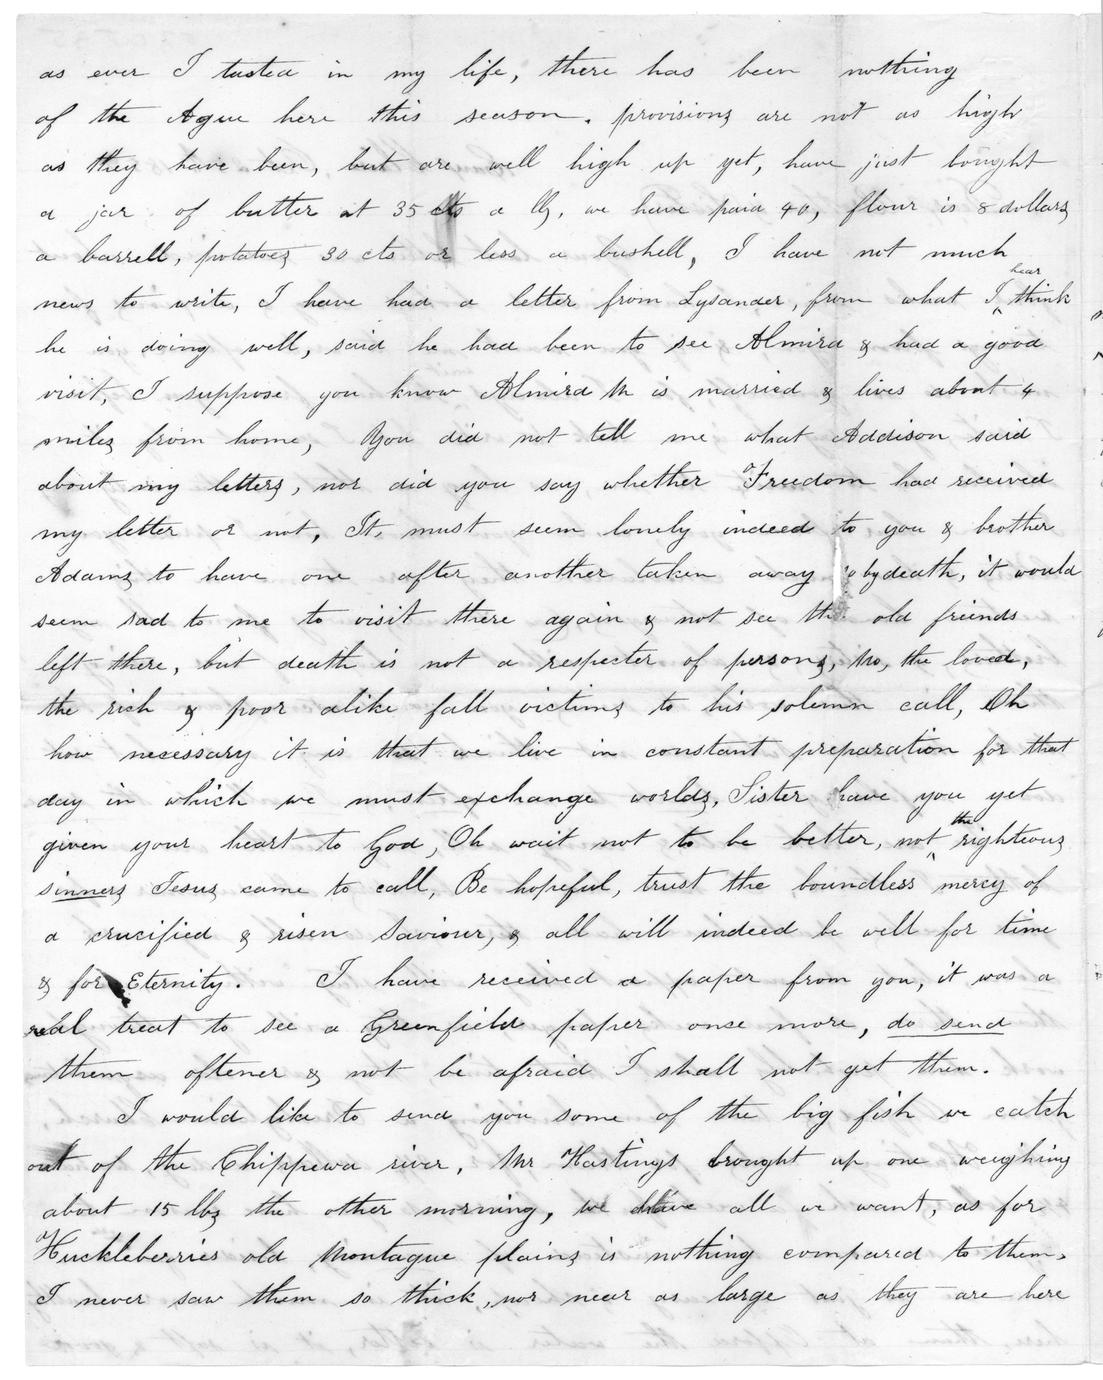 as ever I tasted in my life, there has been nothing
of the Ague here this season. provisions are not as high
as they have been, but are well high up yet, have just bought
a jar of butter at 35 cts a lb, we have paid 40, flour is 8 dollars
a barrell, potatoes 30 cts or less a bushell, I have not much
news to write, I have had a letter from Lysander, from what I ^hear think
he is doing well, said he had been to see Almira & had a good
visit, I suppose you know Almira M is married & lives about 4
miles from home, You did not tell me what Addison said
about my letters, nor did you say whether Freedom had received
my letter or not, It, must seem lonely indeed to you & brother
Adams to have one after another taken away by death, it would
seem sad to me to visit there again & not see the old freinds
left there, but death is not a respecter of persons, No, the loved,
the rich & poor alike fall victims to his solemn call, Oh
how necessary it is that we live in constant preparation for that
day in which we must exchange worlds, Sister have you yet
given your heart to God, Oh wait not to be better, not ^the righteous
sinners Jesus came to call, Be hopeful, trust the boundless mercy of
a crucified & risen Saviour, & all will indeed be well for time
& for Eternity. I have received a paper from you, it was a
real treat to see a Greenfield paper once more, do send
them oftener & not be afraid I shall not get them.
I would like to send you some of the big fish we catch
out of the Chippewa river, Mr Hastings brought up one weighing
about 15 lbs the other morning, we have all we want, as for
Huckleberries old Montague plains is nothing compared to them,
I never saw them so thick, nor near as large as they are here